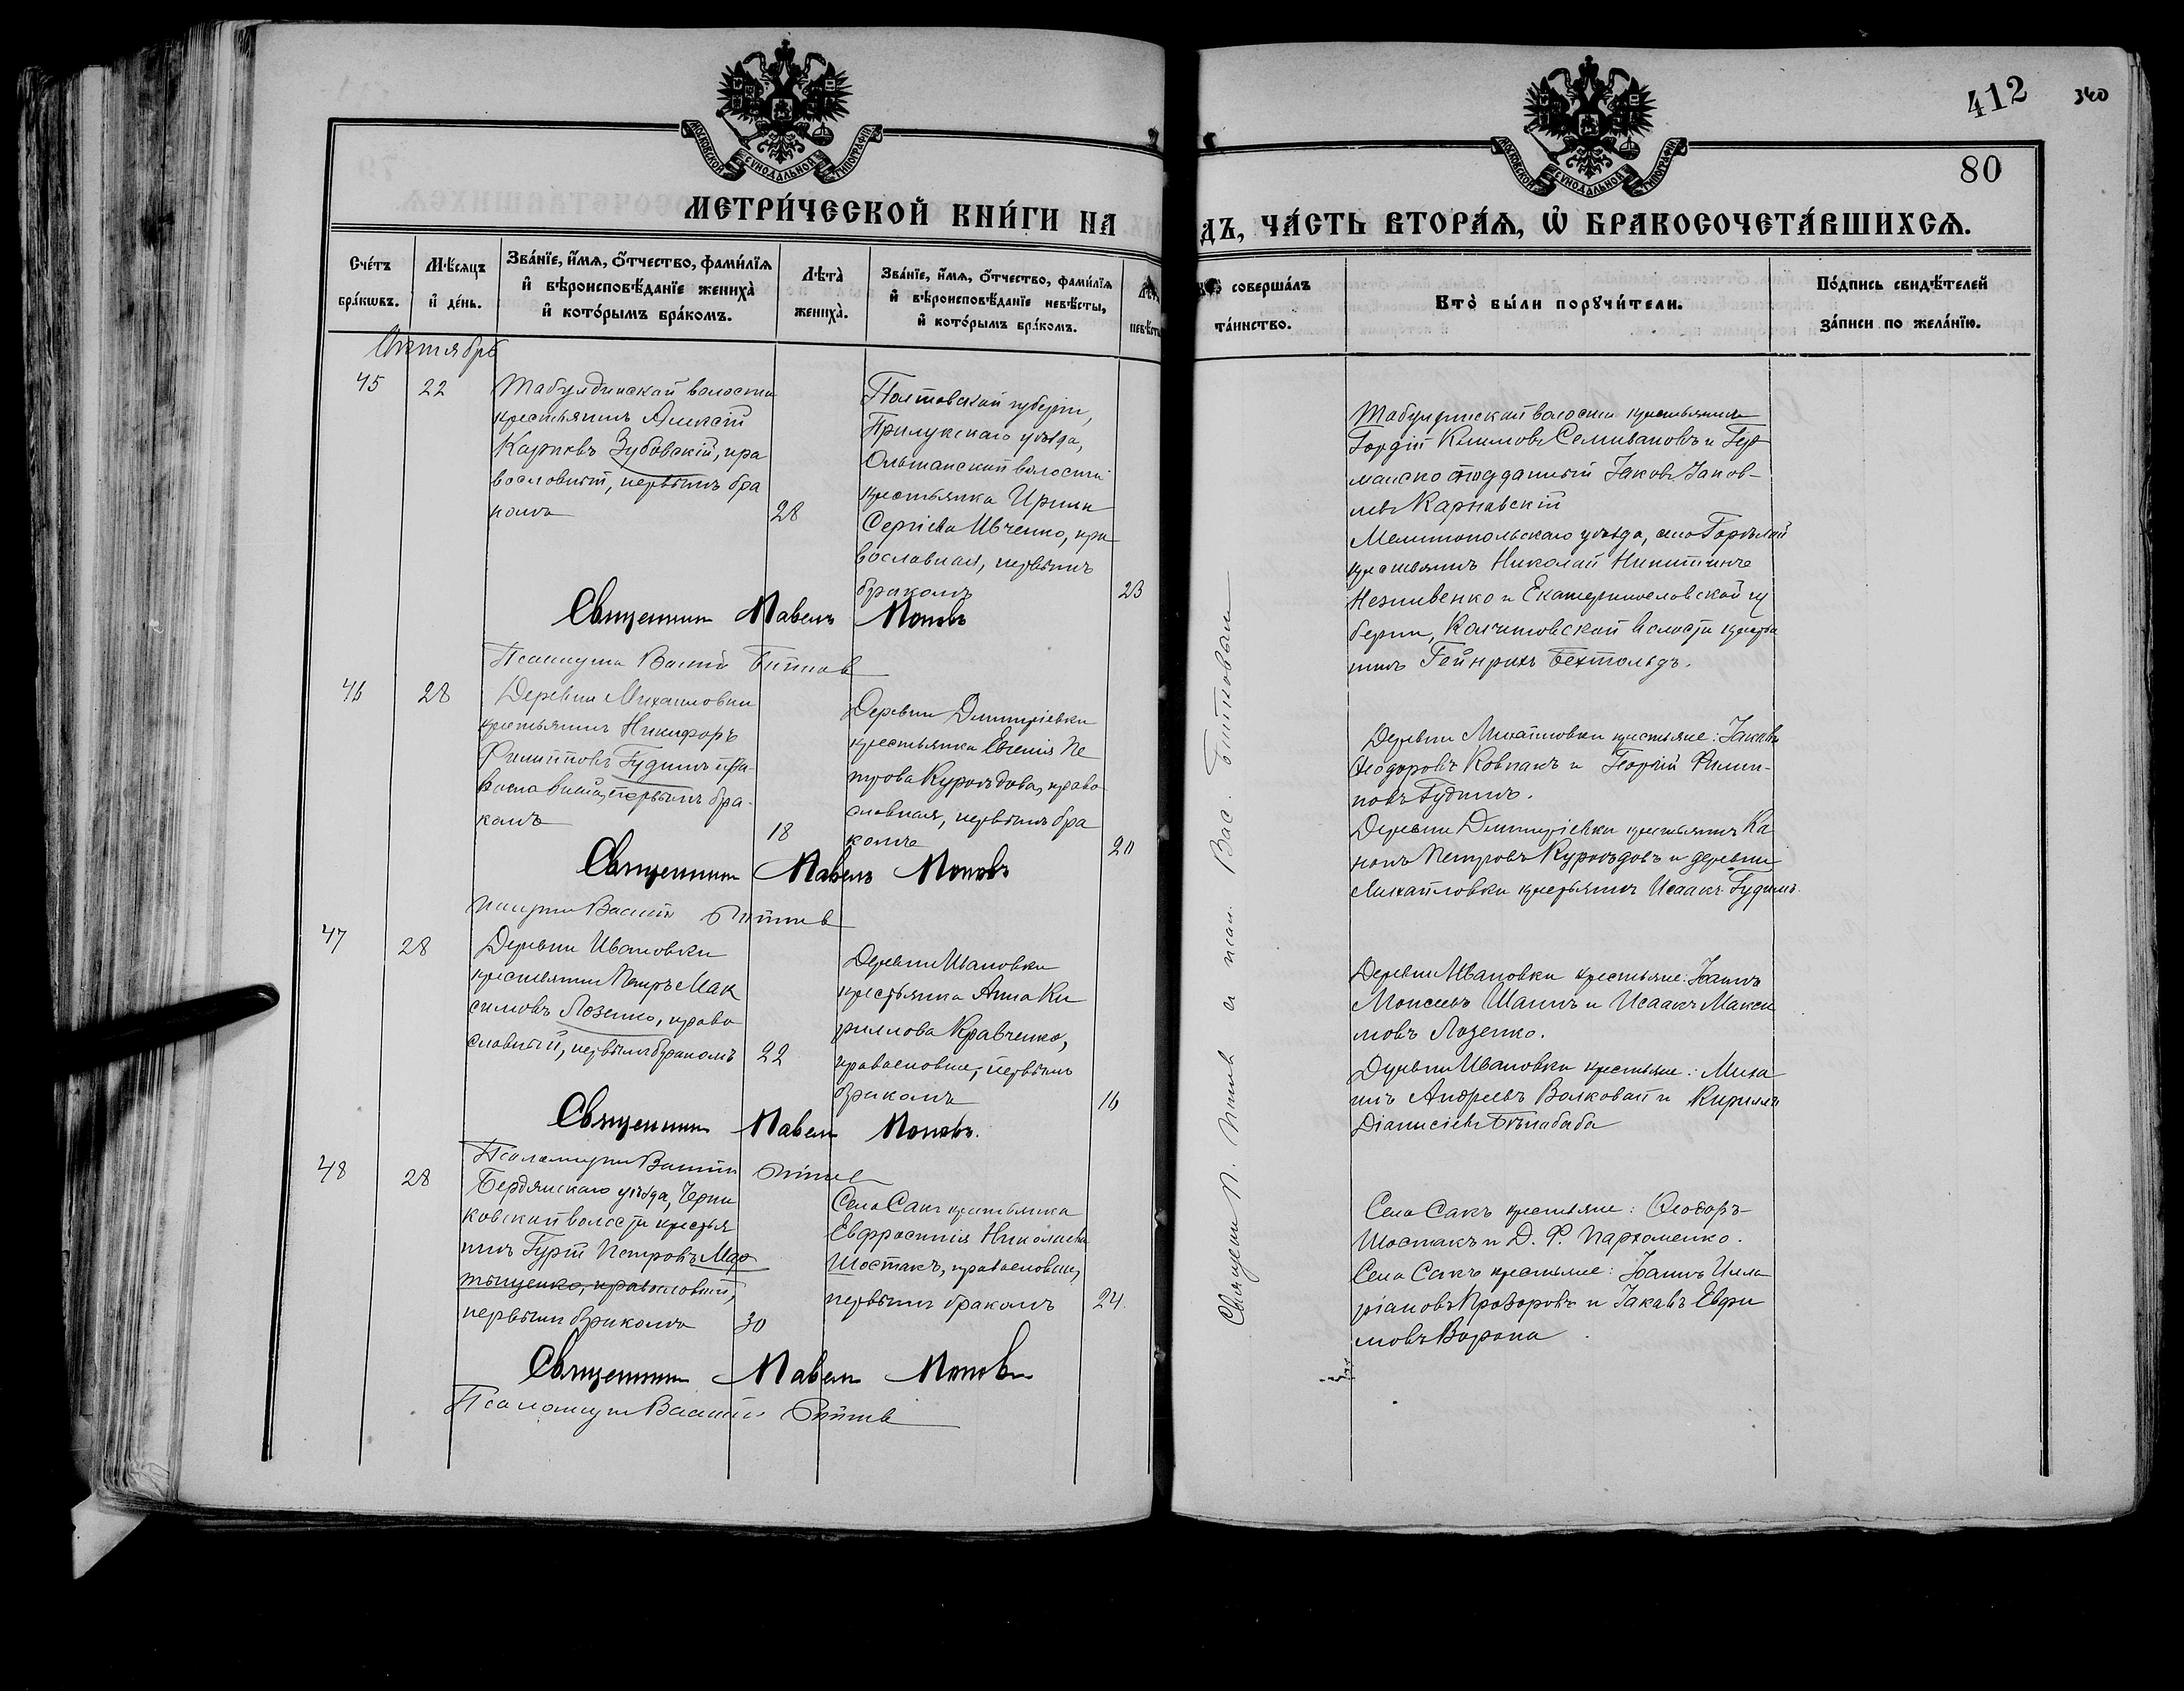 412 340
80
МОСКОВСКОЙ СѴНОДАЛЬНОЙ ТИПОГРАФІИ
МОСКОВСКОЙ СѴНОДАЛЬНОЙ ТИПОГРАФІИ
МЕТРИ́ЧЕСКОЙ КНИ́ГИ НА
ДЪ, ЧА́СТЬ ВТОРА́Ѧ, Ѽ БРАКОСОЧЕТА́ВШИХСѦ.
Сче́тъ
бра́кѡвъ.
Мѣ́сяцъ
и҆ де́нь.
Зва́нїе, и҆́мѧ, о҆́тчество, фами́лїѧ
и҆ вѣроисповѣ́данїе жениха̀
и҆ кото́рымъ бра́комъ.
Лѣта̀
жениха̀.
Зва́нїе, и҆́мѧ, о҆́тчество, фами́лїѧ
и҆ вѣроисповѣ́данїе невѣ́сты,
и҆ кото́рымъ бра́комъ.
соверша́лъ
та́инство.
Кто̀ бы́ли порꙋчи́тели.
По́дпись свидѣ́телей
за́писи по жела́нїю.
Октябрь
45
22
Табулдинской волости
крестьянинъ Алексій
Карповъ Зубовскій, пра
вославный, первымъ бра
комъ
28
Полтавской губерніи,
Прилукскаго уѣзда,
Ольшанской волости
крестьянка Ирина
Сергіева Ивченко, пра
вославная, первымъ
бракомъ
23
Табулдинской волости крестьянинъ
Гордій Климовъ Селивановъ и Гер
манско подданный Іаковъ Іаков-
левъ Карнавскій
Мелитопольскаго уѣзда, села Горѣлой
крестьянинъ Николай Никитинъ
и Екатеринославской гу
берніи, волости крестья
нинъ Гейнрихъ Бехтольдъ.
Священникъ Павелъ Поповъ
Псаломщикъ Василій
46
28
Деревни Михайловки
крестьянинъ Никифоръ
Филипповъ Гудимъ пра-
вославный, первымъ бра-
комъ
18
Деревни Димитріевки
крестьянка Евгенія Пе
трова Куроѣдова, право
славная, первымъ бра
комъ
20
Деревни Михайловки крестьяне: Іаковъ
Ѳеодоровъ Ковпакъ и Георгій Филип-
повъ Гудимъ.
Деревни Димитріевки крестьянинъ Ка
нонъ Петровъ Куроѣдовъ и деревни
Михайловки крестьянинъ Исаакъ Гудимъ.
Священникъ Павелъ Поповъ
Псаломщикъ Василій
47
28
Деревни Ивановки
крестьянинъ Петръ Мак
симовъ Лозенко, право
славный, первымъ бракомъ
22
Деревни Ивановки
крестьянка Анна Ки
риллова Кравченко,
православная, первымъ
бракомъ
16
Деревни Ивановки крестьяне: Іоаннъ
Моисеевъ и Исаакъ Макси
мовъ Лозенко.
Деревни Ивановки крестьяне: Миха
илъ Андреевъ Волковай и Кириллъ
Діонисіевъ Бѣлабаба
Священникъ Павелъ Поповъ.
Псаломщикъ Василій
48
28
Бердянскаго уѣзда, Черни
ковской волости крестья
нинъ Гурій Петровъ Мар
тыщенко, православный,
первымъ бракомъ
30
Села Сакъ крестьянка
Евфросинія Николаева
Шостакъ, православная,
первымъ бракомъ
24.
Села Сакъ крестьяне: Ѳеодоръ
Шостакъ и Д. Ф. Пархоменко.
Села Сакъ крестьяне: Іоаннъ Илла
ріановъ Прохоровъ и Іаковъ Евфи
мовъ Ворона.
Священникъ Павелъ Поповъ
Псаломщикъ Василій
Священникъ П. Поповъ и псал. Вас.